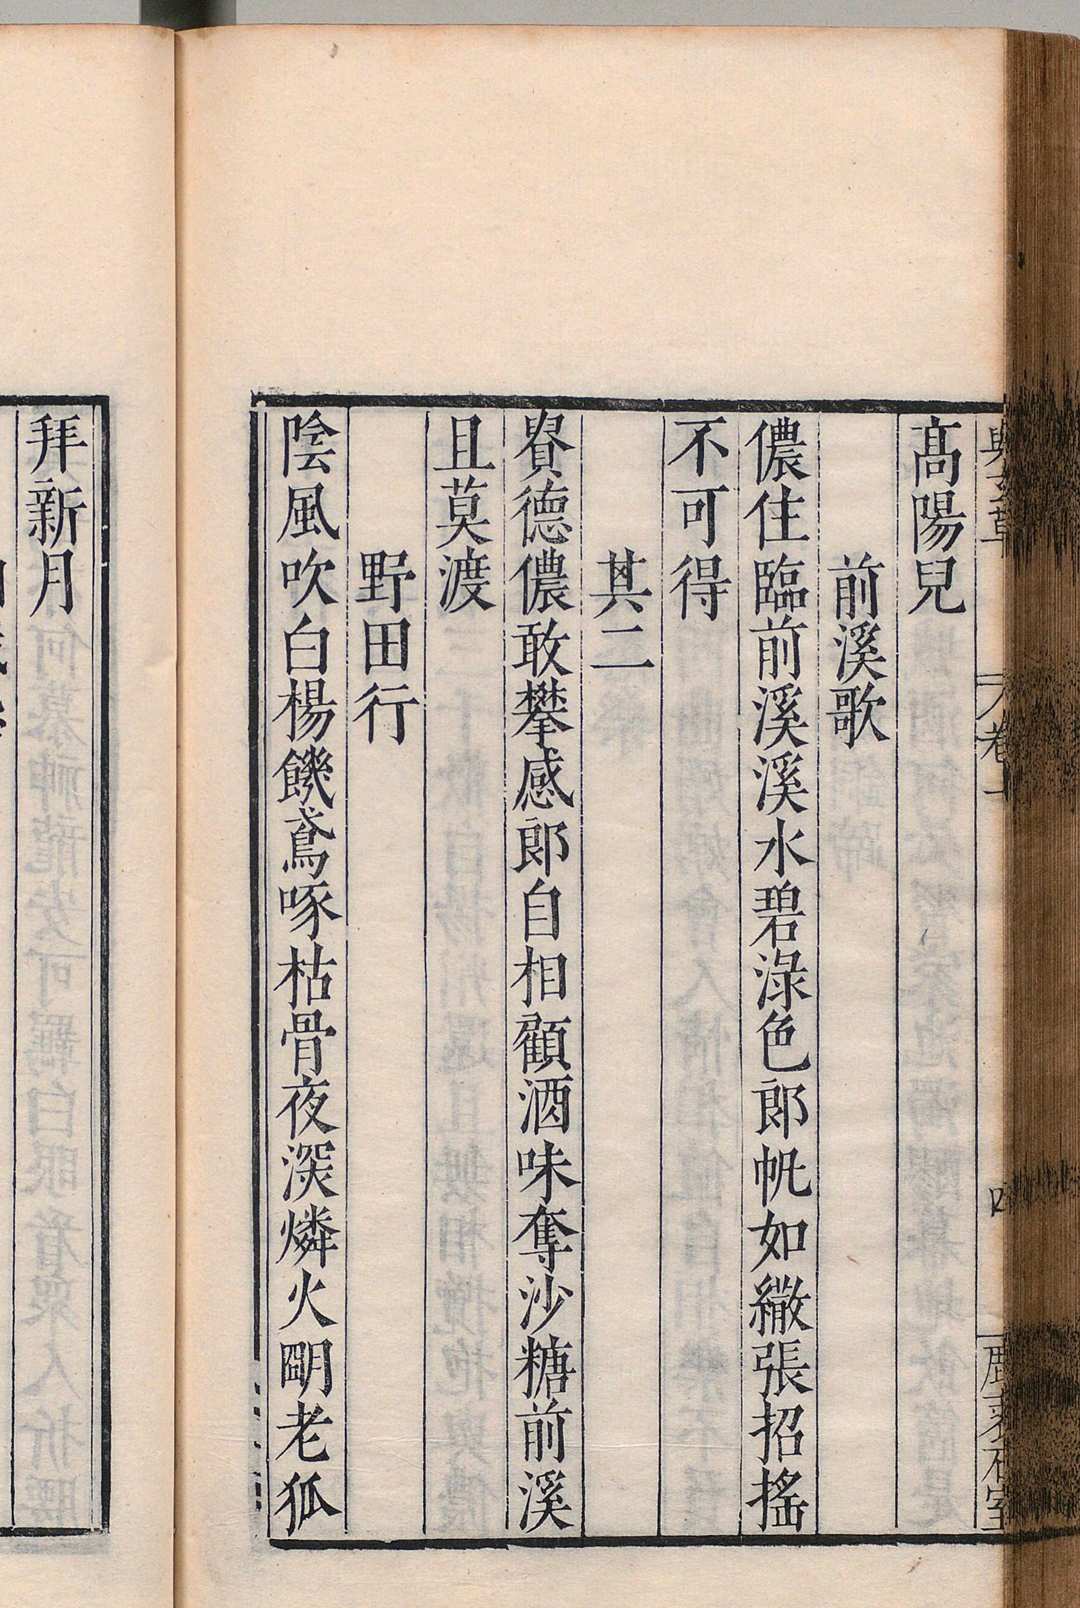 高陽兒
前溪歌
儂住臨前溪溪水碧淥色郎帆如繖張招搖
不可得
其二
賛德儂敢攀感郎自相顧酒味奪沙糖前溪
且莫渡
野田行
陰風吹白楊饑鳶啄枯骨夜深燐火朙老狐
拜新月